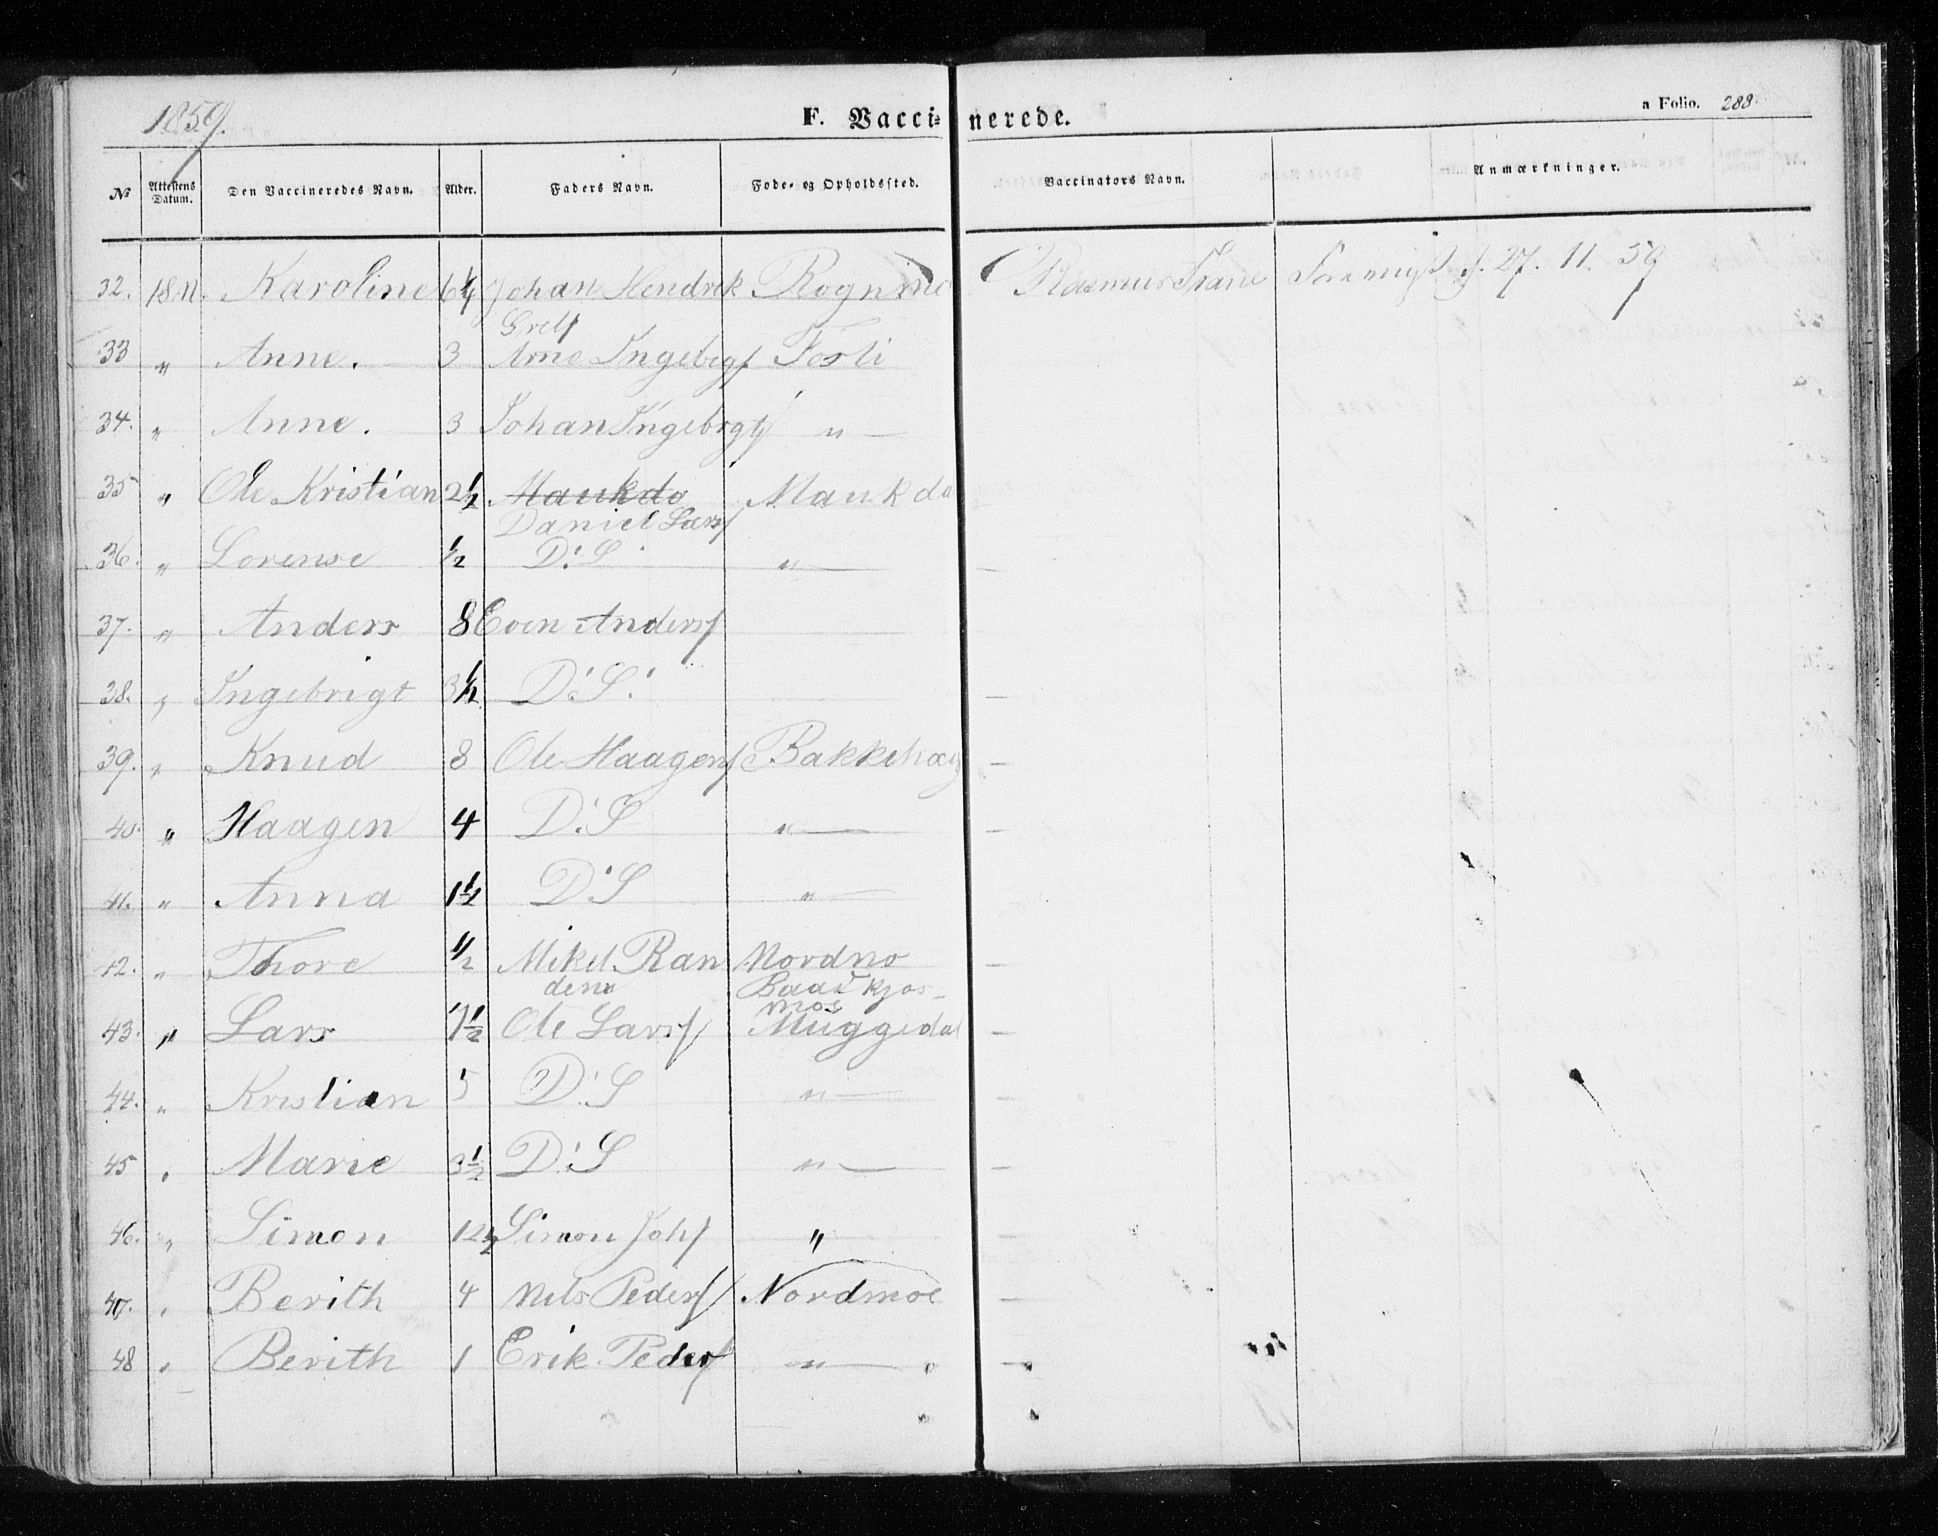 1859.
F. Vaccinerede.
a Folio. 288.
№ Attestens Datum. Den Vaccineredes Navn. Alder. Faders Navn. Føde- og Opholdssted. Vaccinators Navn. Anmærkninger.
32. 18.11. Karoline 6¼ Johan Hendrik Rognmo Rasmus 27.11.59
33 " Anne. 3 Arne Ingebrigtſ Fosli
34. " Anne. 3 Johan Ingebrgtſ "
35 " Ole Kristian 2½ Maukda Maukda
Daniel Larsſ
36. " Lorense ½ D: S "
37. " Anders 8 Even Andersſ
38. " Ingebrigt 3½ D: S:
39. " Knud 8 Ole Haagensſ Bakkehaug
40. " Haagen 4 D: S "
41. " Anna 1½ D: S "
42. " Thore ½ Mikel Ran Nordmo
dem Baadkjos
moe
43. " Lars 7½ Ole Larsſ Muggedal
44. " Kristian 5 D: S "
45 " Marie 3½ D: S "
46. " Simon 12½ Simon Johſ "
47. " Berith 4 Nils Pedersſ Nordmoe
48 " Berith 1 Erik Pedersſ "